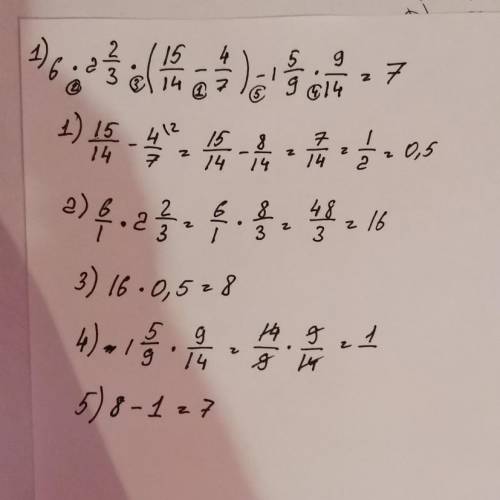 1) 6 · 2 2/3 · (15/14 - 4/7) - 1 5/9 · 9/14 = 7
② ③ ① ⑤ ④
1) 15/14 - 4/7 \2 = 15/14 - 8/14 = 7/14 = 1/2 = 0,5
2) 6/1 · 2 2/3 = 6/1 · 8/3 = 48/3 = 16
3) 16 · 0,5 = 8
4) 1 5/9 · 9/14 = 14/9 · 9/14 = 1
5) 8 - 1 = 7